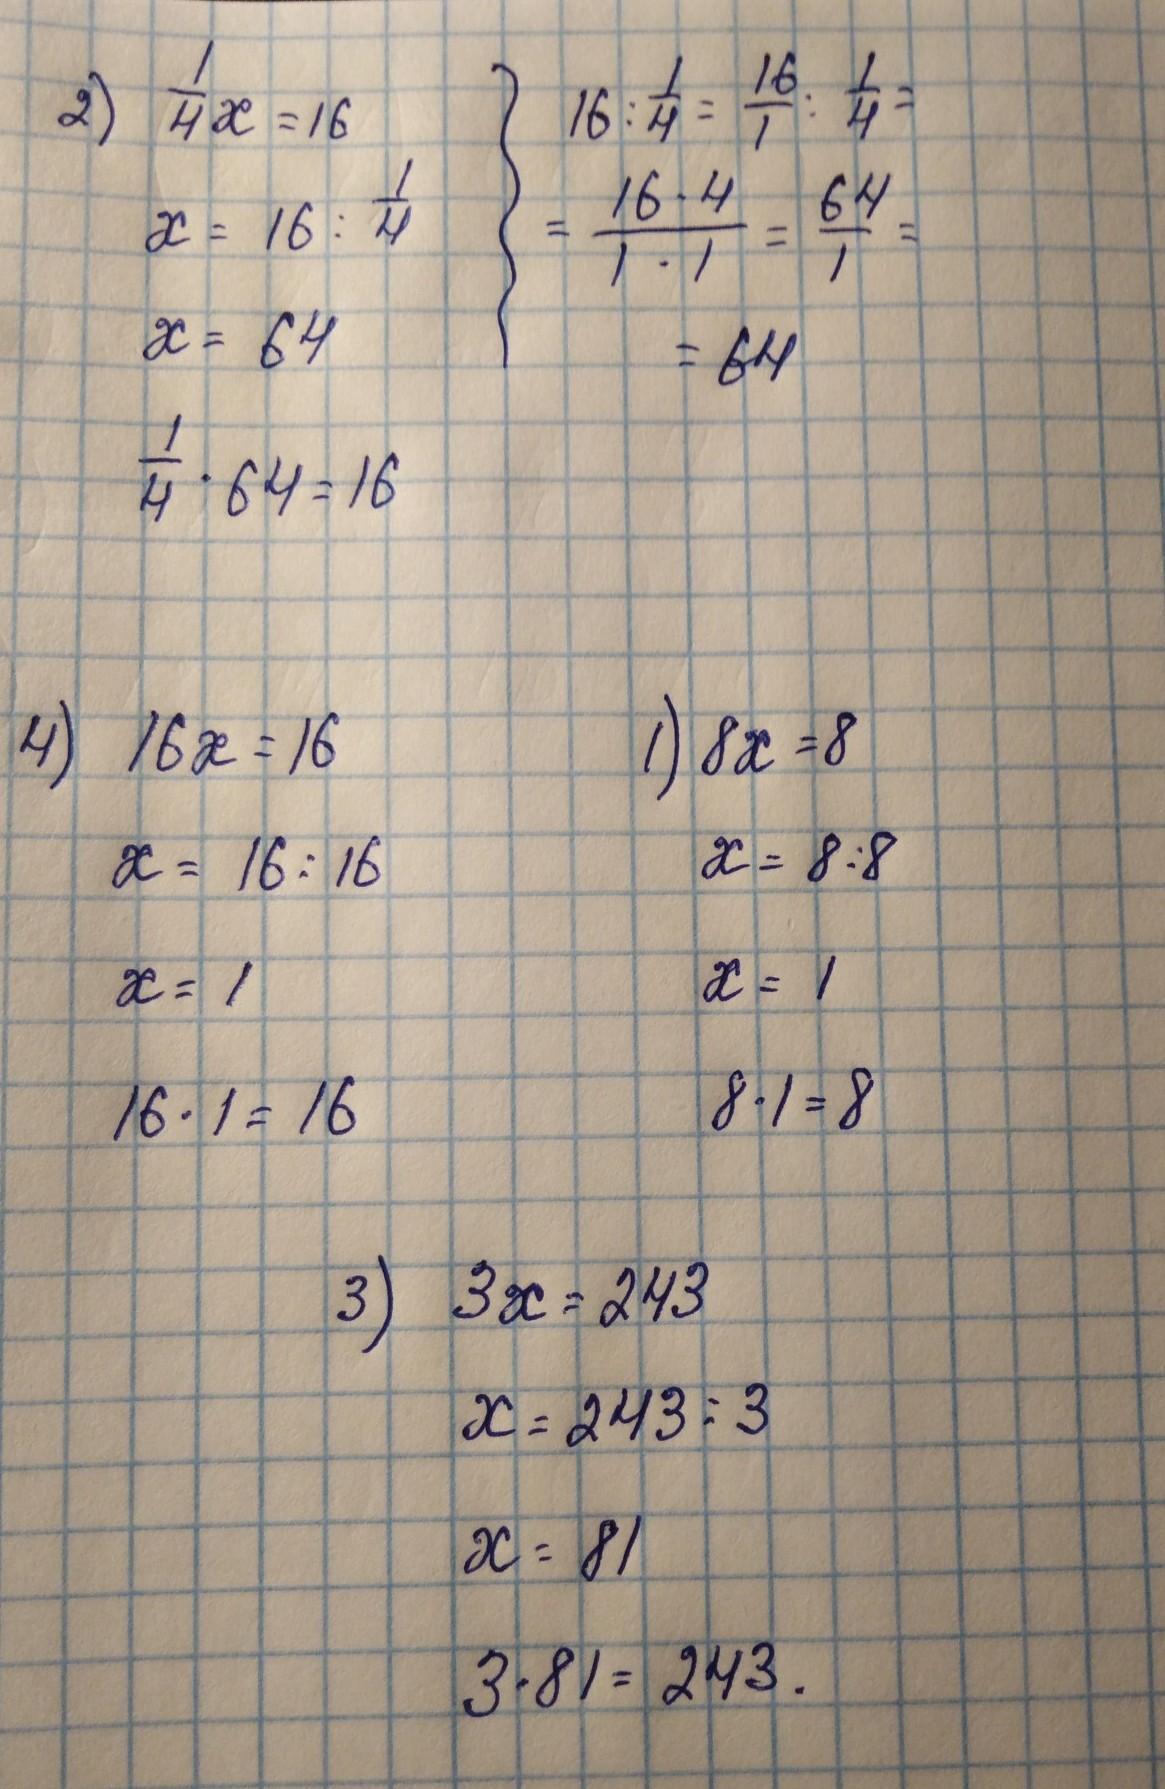 2) 1/4 x = 16
x = 16 : 1/4
x = 64
1/4 · 64 = 16
16 : 1/4 = 16/1 : 1/4 =
= 16 · 4 / 1 · 1 = 64/1 =
= 64
4) 16x = 16
x = 16 : 16
x = 1
16 · 1 = 16
1) 8x = 8
x = 8 : 8
x = 1
8 · 1 = 8
3) 3x = 243
x = 243 : 3
x = 81
3 · 81 = 243.